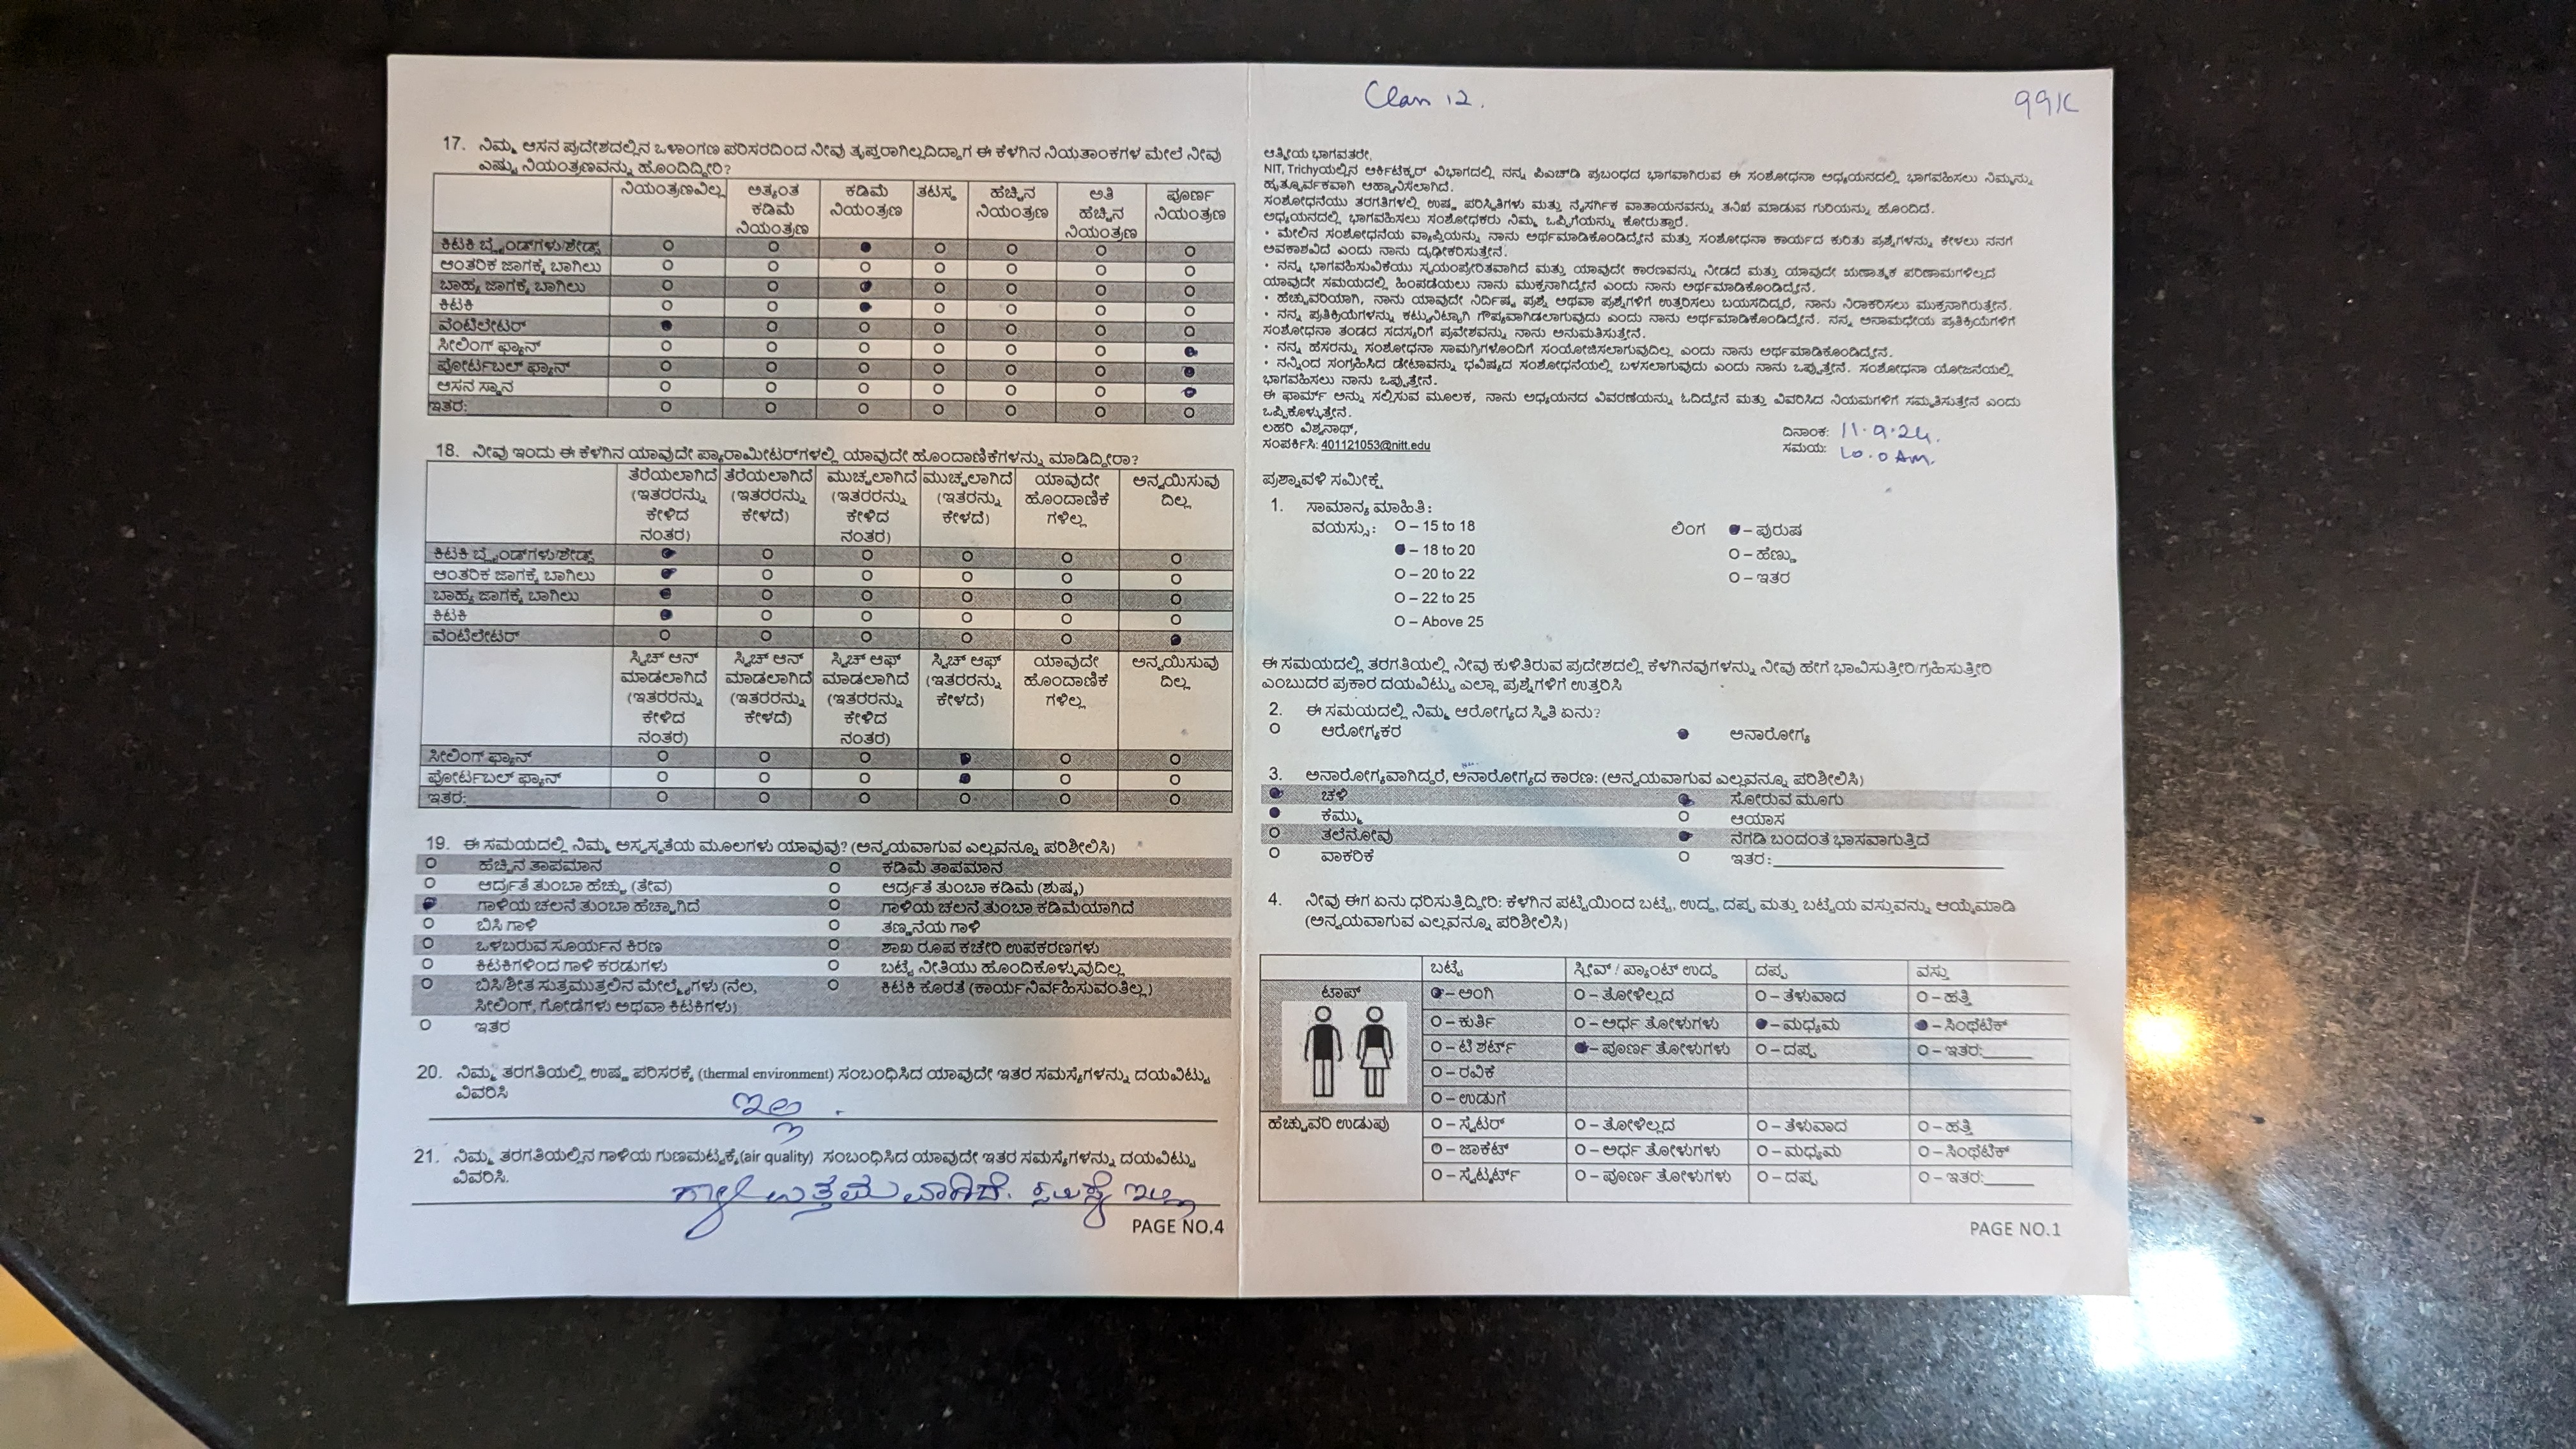 17. ನಿಮ್ಮ ಆಸನ ಪ್ರದೇಶದಲ್ಲಿನ ಒಳಾಂಗಣ ಪರಿಸರದಿಂದ ನೀವು ತೃಪ್ತರಾಗಿಲ್ಲದಿದ್ದಾಗ ಈ ಕೆಳಗಿನ ನಿಯತಾಂಕಗಳ ಮೇಲೆ ನೀವು
ಎಷ್ಟು ನಿಯಂತ್ರಣವನ್ನು ಹೊಂದಿದ್ದೀರಿ?
ನಿಯಂತ್ರಣವಿಲ್ಲ ಅತ್ಯಂತ ಕಡಿಮೆ ನಿಯಂತ್ರಣ ಕಡಿಮೆ ನಿಯಂತ್ರಣ ತಟಸ್ಥ ಹೆಚ್ಚಿನ ನಿಯಂತ್ರಣ ಅತಿ ಹೆಚ್ಚಿನ ನಿಯಂತ್ರಣ ಪೂರ್ಣ ನಿಯಂತ್ರಣ
ಕಿಟಕಿ ಬ್ಲೈಂಡ್‌ಗಳು/ಶೇಡ್ಸ್
ಆಂತರಿಕ ಜಾಗಕ್ಕೆ ಬಾಗಿಲು
ಬಾಹ್ಯ ಜಾಗಕ್ಕೆ ಬಾಗಿಲು
ಕಿಟಕಿ
ವೆಂಟಿಲೇಟರ್
ಸೀಲಿಂಗ್ ಫ್ಯಾನ್
ಪೋರ್ಟಬಲ್ ಫ್ಯಾನ್
ಆಸನ ಸ್ಥಾನ
ಇತರ:
18. ನೀವು ಇಂದು ಈ ಕೆಳಗಿನ ಯಾವುದೇ ಪ್ಯಾರಾಮೀಟರ್‌ಗಳಲ್ಲಿ ಯಾವುದೇ ಹೊಂದಾಣಿಕೆಗಳನ್ನು ಮಾಡಿದ್ದೀರಾ?
ತೆರೆಯಲಾಗಿದೆ (ಇತರರನ್ನು ಕೇಳಿದ ನಂತರ) ತೆರೆಯಲಾಗಿದೆ (ಇತರರನ್ನು ಕೇಳದೆ) ಮುಚ್ಚಲಾಗಿದೆ (ಇತರರನ್ನು ಕೇಳಿದ ನಂತರ) ಮುಚ್ಚಲಾಗಿದೆ (ಇತರರನ್ನು ಕೇಳದೆ) ಯಾವುದೇ ಹೊಂದಾಣಿಕೆ ಗಳಿಲ್ಲ ಅನ್ವಯಿಸುವು ದಿಲ್ಲ
ಕಿಟಕಿ ಬ್ಲೈಂಡ್‌ಗಳು/ಶೇಡ್ಸ್
ಆಂತರಿಕ ಜಾಗಕ್ಕೆ ಬಾಗಿಲು
ಬಾಹ್ಯ ಜಾಗಕ್ಕೆ ಬಾಗಿಲು
ಕಿಟಕಿ
ವೆಂಟಿಲೇಟರ್
ಸ್ವಿಚ್ ಆನ್ ಮಾಡಲಾಗಿದೆ (ಇತರರನ್ನು ಕೇಳಿದ ನಂತರ) ಸ್ವಿಚ್ ಆನ್ ಮಾಡಲಾಗಿದೆ (ಇತರರನ್ನು ಕೇಳದೆ) ಸ್ವಿಚ್ ಆಫ್ ಮಾಡಲಾಗಿದೆ (ಇತರರನ್ನು ಕೇಳಿದ ನಂತರ) ಸ್ವಿಚ್ ಆಫ್ (ಇತರರನ್ನು ಕೇಳದೆ) ಯಾವುದೇ ಹೊಂದಾಣಿಕೆ ಗಳಿಲ್ಲ ಅನ್ವಯಿಸುವು ದಿಲ್ಲ
ಸೀಲಿಂಗ್ ಫ್ಯಾನ್
ಪೋರ್ಟಬಲ್ ಫ್ಯಾನ್
ಇತರ:
19. ಈ ಸಮಯದಲ್ಲಿ ನಿಮ್ಮ ಅಸ್ವಸ್ಥತೆಯ ಮೂಲಗಳು ಯಾವುವು? (ಅನ್ವಯವಾಗುವ ಎಲ್ಲವನ್ನೂ ಪರಿಶೀಲಿಸಿ)
ಹೆಚ್ಚಿನ ತಾಪಮಾನ ಕಡಿಮೆ ತಾಪಮಾನ
ಆರ್ದ್ರತೆ ತುಂಬಾ ಹೆಚ್ಚು (ತೇವ) ಆರ್ದ್ರತೆ ತುಂಬಾ ಕಡಿಮೆ (ಶುಷ್ಕ)
ಗಾಳಿಯ ಚಲನೆ ತುಂಬಾ ಹೆಚ್ಚಾಗಿದೆ ಗಾಳಿಯ ಚಲನೆ ತುಂಬಾ ಕಡಿಮೆಯಾಗಿದೆ
ಬಿಸಿ ಗಾಳಿ ತಣ್ಣನೆಯ ಗಾಳಿ
ಒಳಬರುವ ಸೂರ್ಯನ ಕಿರಣ ಶಾಖ ರೂಪ ಕಚೇರಿ ಉಪಕರಣಗಳು
ಕಿಟಕಿಗಳಿಂದ ಗಾಳಿ ಕರಡುಗಳು ಬಟ್ಟೆ ನೀತಿಯು ಹೊಂದಿಕೊಳ್ಳುವುದಿಲ್ಲ
ಬಿಸಿ/ಶೀತ ಸುತ್ತಮುತ್ತಲಿನ ಮೇಲ್ಮೈಗಳು (ನೆಲ, ಕಿಟಕಿ ಕೊರತೆ (ಕಾರ್ಯನಿರ್ವಹಿಸುವಂತಿಲ್ಲ)
ಸೀಲಿಂಗ್, ಗೋಡೆಗಳು ಅಥವಾ ಕಿಟಕಿಗಳು)
ಇತರ
20. ನಿಮ್ಮ ತರಗತಿಯಲ್ಲಿ ಉಷ್ಣ ಪರಿಸರಕ್ಕೆ (thermal environment) ಸಂಬಂಧಿಸಿದ ಯಾವುದೇ ಇತರ ಸಮಸ್ಯೆಗಳನ್ನು ದಯವಿಟ್ಟು
ವಿವರಿಸಿ
ಇಲ್ಲ.
21. ನಿಮ್ಮ ತರಗತಿಯಲ್ಲಿನ ಗಾಳಿಯ ಗುಣಮಟ್ಟಕ್ಕೆ (air quality) ಸಂಬಂಧಿಸಿದ ಯಾವುದೇ ಇತರ ಸಮಸ್ಯೆಗಳನ್ನು ದಯವಿಟ್ಟು
ವಿವರಿಸಿ.
ಗಾಳಿ ಉತ್ತಮವಾಗಿದೆ. ಸಮಸ್ಯೆ ಇಲ್ಲ
PAGE NO.4
Class 12.
ಆತ್ಮೀಯ ಭಾಗವತರೇ,
NIT, Trichyಯಲ್ಲಿನ ಆರ್ಕಿಟೆಕ್ಚರ್ ವಿಭಾಗದಲ್ಲಿ ನನ್ನ ಪಿಎಚ್‌ಡಿ ಪ್ರಬಂಧದ ಭಾಗವಾಗಿರುವ ಈ ಸಂಶೋಧನಾ ಅಧ್ಯಯನದಲ್ಲಿ ಭಾಗವಹಿಸಲು ನಿಮ್ಮನ್ನು
ಹೃತ್ಪೂರ್ವಕವಾಗಿ ಆಹ್ವಾನಿಸಲಾಗಿದೆ.
ಸಂಶೋಧನೆಯು ತರಗತಿಗಳಲ್ಲಿ ಉಷ್ಣ ಪರಿಸ್ಥಿತಿಗಳು ಮತ್ತು ನೈಸರ್ಗಿಕ ವಾತಾಯನವನ್ನು ತನಿಖೆ ಮಾಡುವ ಗುರಿಯನ್ನು ಹೊಂದಿದೆ.
ಅಧ್ಯಯನದಲ್ಲಿ ಭಾಗವಹಿಸಲು ಸಂಶೋಧಕರು ನಿಮ್ಮ ಒಪ್ಪಿಗೆಯನ್ನು ಕೋರುತ್ತಾರೆ.
• ಮೇಲಿನ ಸಂಶೋಧನೆಯ ವ್ಯಾಪ್ತಿಯನ್ನು ನಾನು ಅರ್ಥಮಾಡಿಕೊಂಡಿದ್ದೇನೆ ಮತ್ತು ಸಂಶೋಧನಾ ಕಾರ್ಯದ ಕುರಿತು ಪ್ರಶ್ನೆಗಳನ್ನು ಕೇಳಲು ನನಗೆ
ಅವಕಾಶವಿದೆ ಎಂದು ನಾನು ದೃಢೀಕರಿಸುತ್ತೇನೆ.
• ನನ್ನ ಭಾಗವಹಿಸುವಿಕೆಯು ಸ್ವಯಂಪ್ರೇರಿತವಾಗಿದೆ ಮತ್ತು ಯಾವುದೇ ಕಾರಣವನ್ನು ನೀಡದೆ ಮತ್ತು ಯಾವುದೇ ಋಣಾತ್ಮಕ ಪರಿಣಾಮಗಳಿಲ್ಲದೆ
ಯಾವುದೇ ಸಮಯದಲ್ಲಿ ಹಿಂಪಡೆಯಲು ನಾನು ಮುಕ್ತನಾಗಿದ್ದೇನೆ ಎಂದು ನಾನು ಅರ್ಥಮಾಡಿಕೊಂಡಿದ್ದೇನೆ.
• ಹೆಚ್ಚುವರಿಯಾಗಿ, ನಾನು ಯಾವುದೇ ನಿರ್ದಿಷ್ಟ ಪ್ರಶ್ನೆ ಅಥವಾ ಪ್ರಶ್ನೆಗಳಿಗೆ ಉತ್ತರಿಸಲು ಬಯಸದಿದ್ದರೆ, ನಾನು ನಿರಾಕರಿಸಲು ಮುಕ್ತನಾಗಿರುತ್ತೇನೆ.
• ನನ್ನ ಪ್ರತಿಕ್ರಿಯೆಗಳನ್ನು ಕಟ್ಟುನಿಟ್ಟಾಗಿ ಗೌಪ್ಯವಾಗಿಡಲಾಗುವುದು ಎಂದು ನಾನು ಅರ್ಥಮಾಡಿಕೊಂಡಿದ್ದೇನೆ. ನನ್ನ ಅನಾಮಧೇಯ ಪ್ರತಿಕ್ರಿಯೆಗಳಿಗೆ
ಸಂಶೋಧನಾ ತಂಡದ ಸದಸ್ಯರಿಗೆ ಪ್ರವೇಶವನ್ನು ನಾನು ಅನುಮತಿಸುತ್ತೇನೆ.
• ನನ್ನ ಹೆಸರನ್ನು ಸಂಶೋಧನಾ ಸಾಮಗ್ರಿಗಳೊಂದಿಗೆ ಸಂಯೋಜಿಸಲಾಗುವುದಿಲ್ಲ ಎಂದು ನಾನು ಅರ್ಥಮಾಡಿಕೊಂಡಿದ್ದೇನೆ.
• ನನ್ನಿಂದ ಸಂಗ್ರಹಿಸಿದ ಡೇಟಾವನ್ನು ಭವಿಷ್ಯದ ಸಂಶೋಧನೆಯಲ್ಲಿ ಬಳಸಲಾಗುವುದು ಎಂದು ನಾನು ಒಪ್ಪುತ್ತೇನೆ. ಸಂಶೋಧನಾ ಯೋಜನೆಯಲ್ಲಿ
ಭಾಗವಹಿಸಲು ನಾನು ಒಪ್ಪುತ್ತೇನೆ.
ಈ ಫಾರ್ಮ್ ಅನ್ನು ಸಲ್ಲಿಸುವ ಮೂಲಕ, ನಾನು ಅಧ್ಯಯನದ ವಿವರಣೆಯನ್ನು ಓದಿದ್ದೇನೆ ಮತ್ತು ವಿವರಿಸಿದ ನಿಯಮಗಳಿಗೆ ಸಮ್ಮತಿಸುತ್ತೇನೆ ಎಂದು
ಒಪ್ಪಿಕೊಳ್ಳುತ್ತೇನೆ.
ಲಹರಿ ವಿಶ್ವನಾಥ್,
ಸಂಪರ್ಕಿಸಿ: 401121053@nitt.edu
ದಿನಾಂಕ: 11.9.24.
ಸಮಯ: 10.0 AM.
ಪ್ರಶ್ನಾವಳಿ ಸಮೀಕ್ಷೆ
1. ಸಾಮಾನ್ಯ ಮಾಹಿತಿ:
ವಯಸ್ಸು: – 15 to 18 ಲಿಂಗ – ಪುರುಷ
– 18 to 20 – ಹೆಣ್ಣು
– 20 to 22 – ಇತರ
– 22 to 25
– Above 25
ಈ ಸಮಯದಲ್ಲಿ ತರಗತಿಯಲ್ಲಿ ನೀವು ಕುಳಿತಿರುವ ಪ್ರದೇಶದಲ್ಲಿ ಕೆಳಗಿನವುಗಳನ್ನು ನೀವು ಹೇಗೆ ಭಾವಿಸುತ್ತೀರಿ/ಗ್ರಹಿಸುತ್ತೀರಿ
ಎಂಬುದರ ಪ್ರಕಾರ ದಯವಿಟ್ಟು ಎಲ್ಲಾ ಪ್ರಶ್ನೆಗಳಿಗೆ ಉತ್ತರಿಸಿ
2. ಈ ಸಮಯದಲ್ಲಿ ನಿಮ್ಮ ಆರೋಗ್ಯದ ಸ್ಥಿತಿ ಏನು?
ಆರೋಗ್ಯಕರ ಅನಾರೋಗ್ಯ
3. ಅನಾರೋಗ್ಯವಾಗಿದ್ದರೆ, ಅನಾರೋಗ್ಯದ ಕಾರಣ: (ಅನ್ವಯವಾಗುವ ಎಲ್ಲವನ್ನೂ ಪರಿಶೀಲಿಸಿ)
ಚಳಿ ಸೋರುವ ಮೂಗು
ಕೆಮ್ಮು ಆಯಾಸ
ತಲೆನೋವು ನೆಗಡಿ ಬಂದಂತೆ ಭಾಸವಾಗುತ್ತಿದೆ
ವಾಕರಿಕೆ ಇತರ:
4. ನೀವು ಈಗ ಏನು ಧರಿಸುತ್ತಿದ್ದೀರಿ: ಕೆಳಗಿನ ಪಟ್ಟಿಯಿಂದ ಬಟ್ಟೆ, ಉದ್ದ, ದಪ್ಪ ಮತ್ತು ಬಟ್ಟೆಯ ವಸ್ತುವನ್ನು ಆಯ್ಕೆಮಾಡಿ
(ಅನ್ವಯವಾಗುವ ಎಲ್ಲವನ್ನೂ ಪರಿಶೀಲಿಸಿ)
ಬಟ್ಟೆ ಸ್ಲೀವ್ / ಪ್ಯಾಂಟ್ ಉದ್ದ ದಪ್ಪ ವಸ್ತು
ಟಾಪ್ – ಅಂಗಿ – ತೋಳಿಲ್ಲದ – ತೆಳುವಾದ – ಹತ್ತಿ
– ಕುರ್ತಿ – ಅರ್ಧ ತೋಳುಗಳು – ಮಧ್ಯಮ – ಸಿಂಥೆಟಿಕ್
– ಟಿ ಶರ್ಟ್ – ಪೂರ್ಣ ತೋಳುಗಳು – ದಪ್ಪ – ಇತರ:
– ರವಿಕೆ
– ಉಡುಗೆ
ಹೆಚ್ಚುವರಿ ಉಡುಪು – ಸ್ವೆಟರ್ – ತೋಳಿಲ್ಲದ – ತೆಳುವಾದ – ಹತ್ತಿ
– ಜಾಕೆಟ್ – ಅರ್ಧ ತೋಳುಗಳು – ಮಧ್ಯಮ – ಸಿಂಥೆಟಿಕ್
– ಸ್ವೆಟ್ಶರ್ಟ್ – ಪೂರ್ಣ ತೋಳುಗಳು – ದಪ್ಪ – ಇತರ:
PAGE NO.1